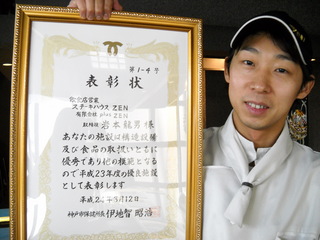 第1-4号
表彰状
飲食店営業
ステーキハウス ZEN
有限会社 plus ZEN
取締役 岩本龍男様
あなたの施設は構造設備
及び食品の取扱いともに
優秀であり他の模範となる
ので平成23年度の優良施設
として表彰します
平成2 年3月12日
神戸市保健所長 伊地智昭浩